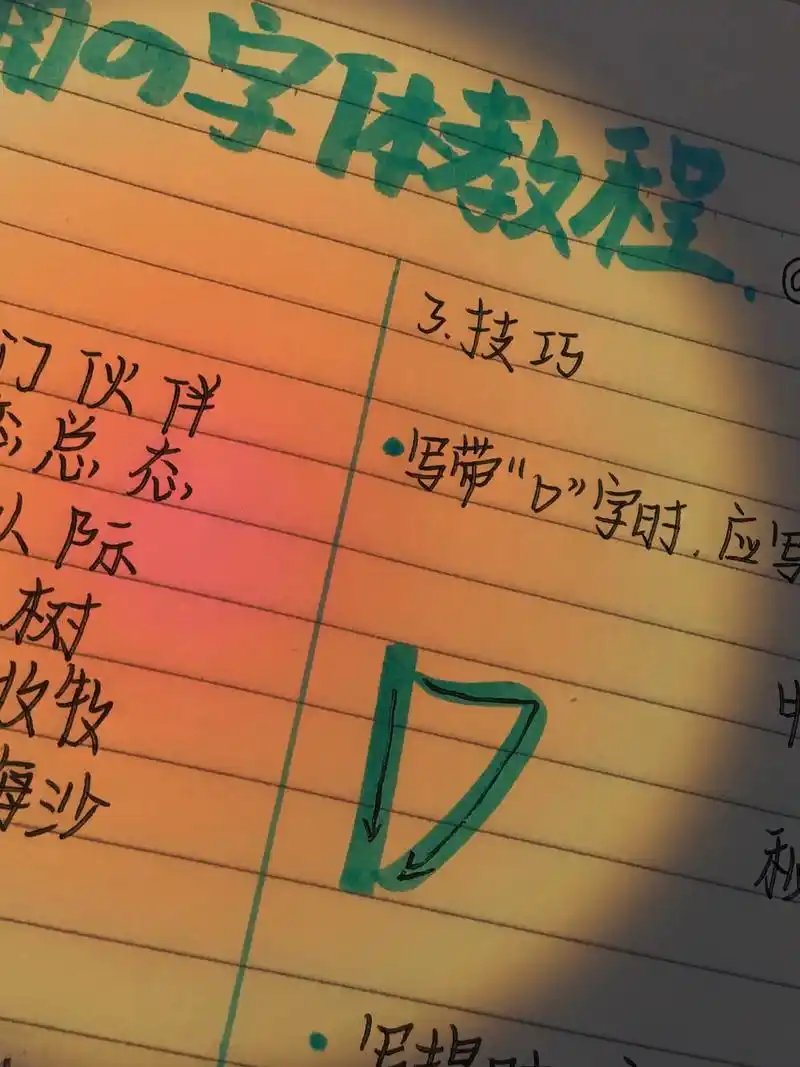 用の字体教程.
们 伙 伴
态 总 态
队 际
树
收 牧
海 沙
3.技巧
写带“口”字时.应写